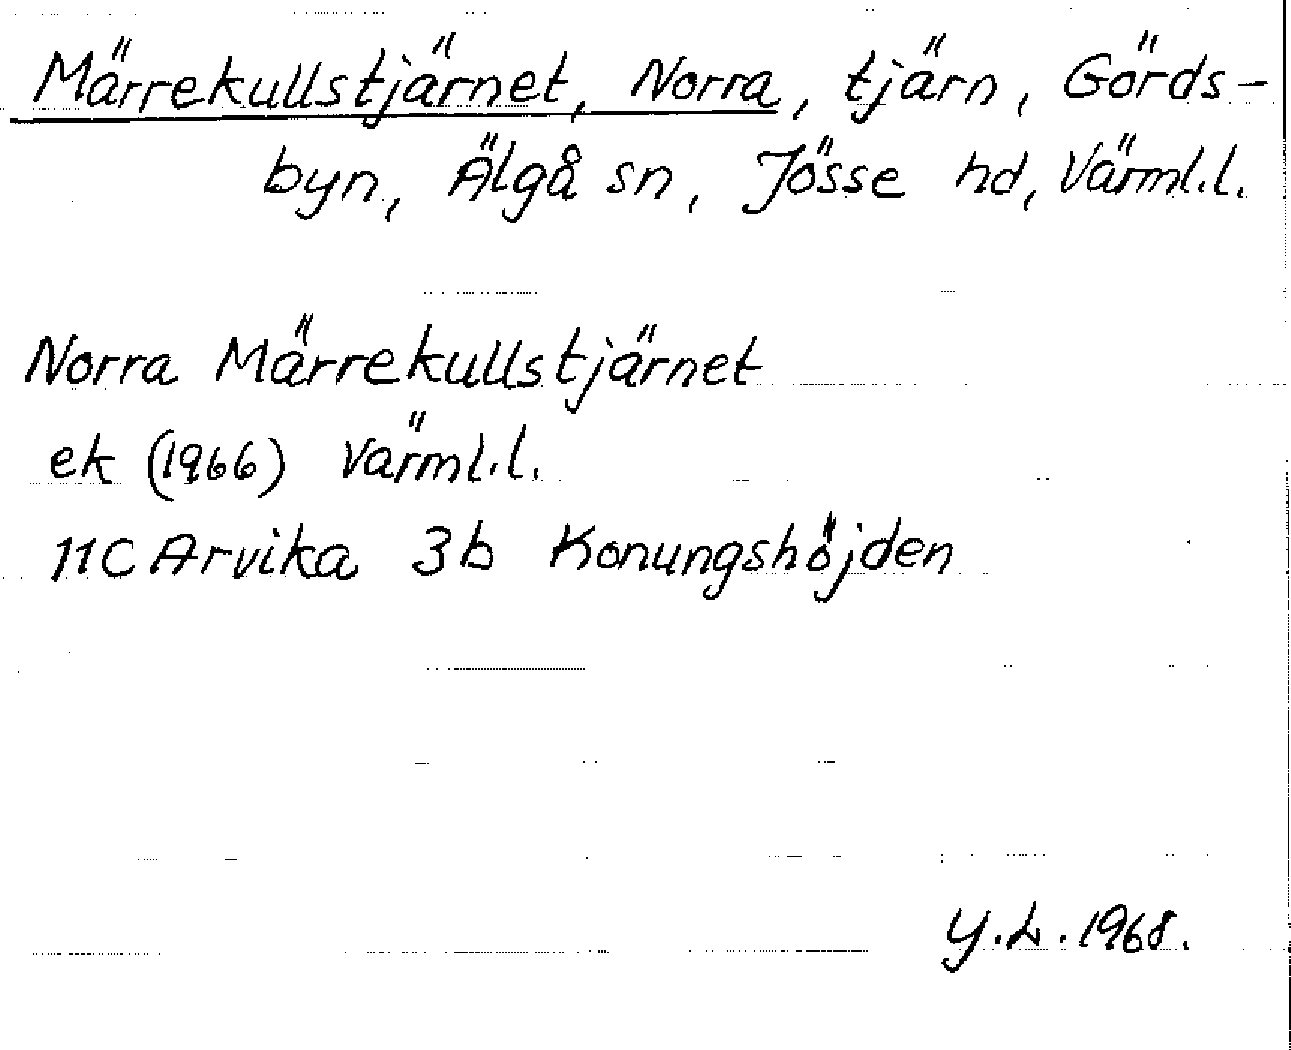 Märrekullstjärnet, Norra, tjärn, Görds-
byn, Älgå sn, Jösse hd, Värml.l.
Norra Märrekullstjärnet
ek (1966) Värml.l.
11C Arvika 3b Konungshöjden
Y.L. 1968.